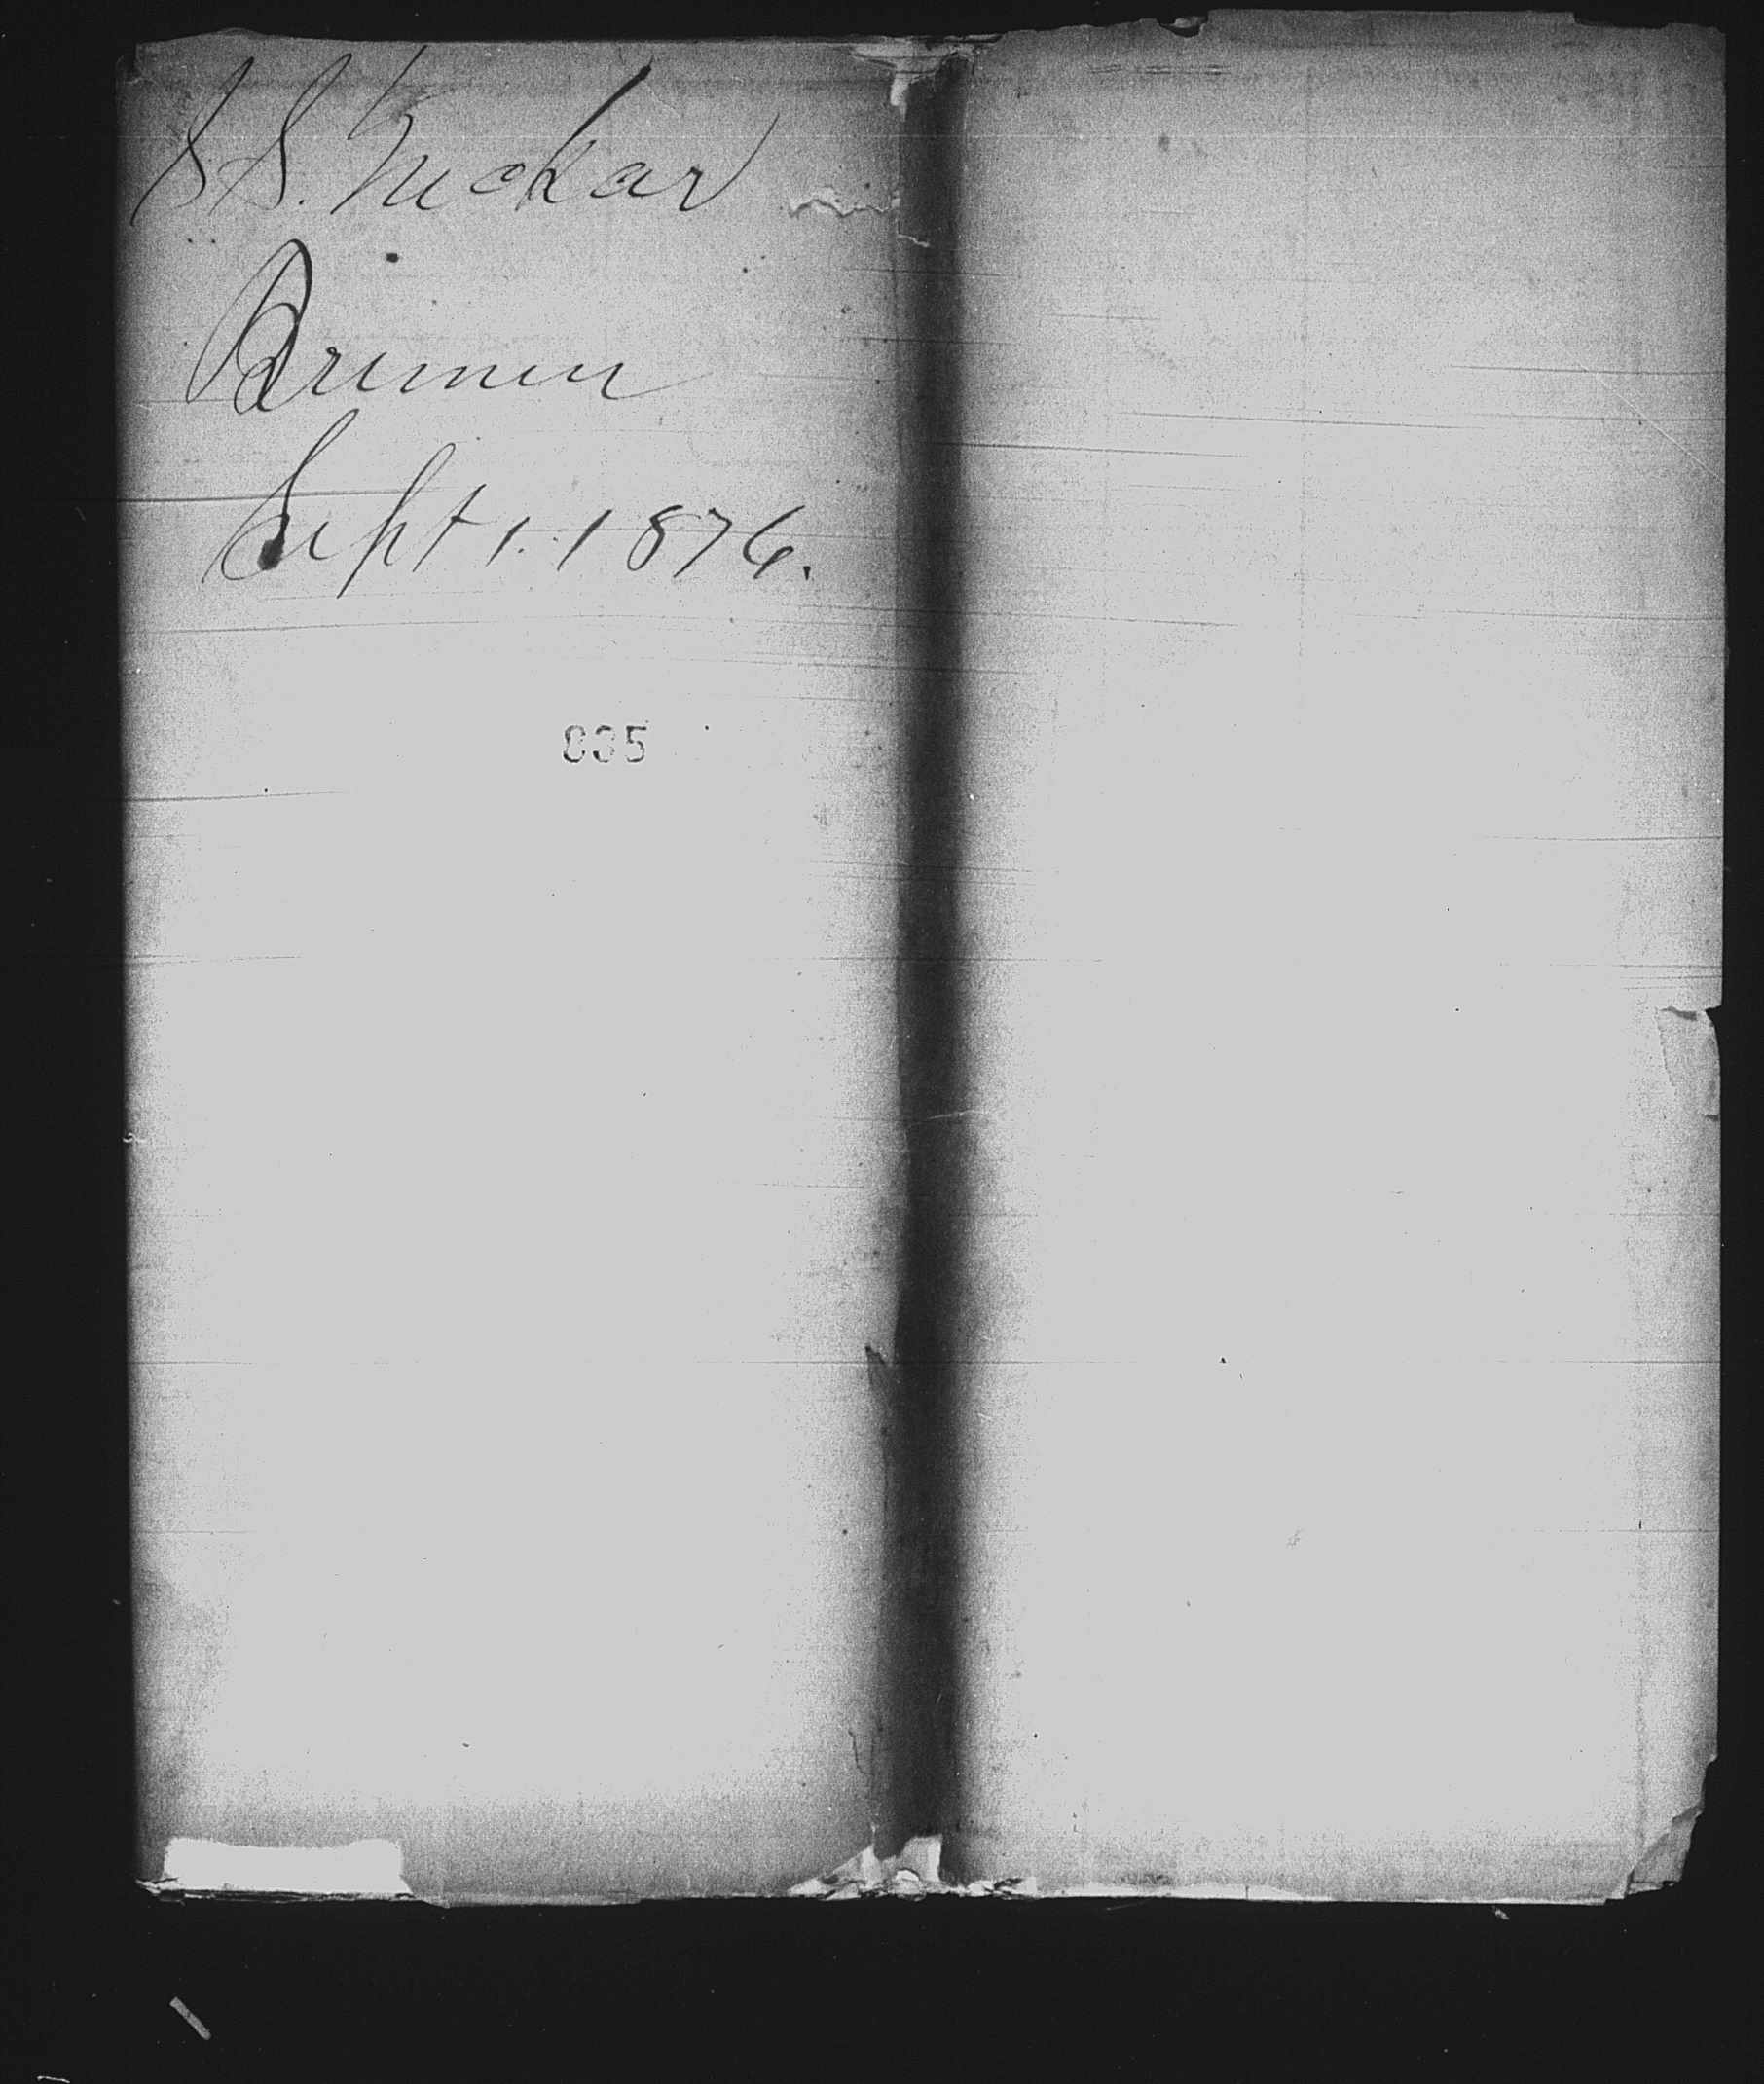 S.S. Neckar
Bremen
Sept 1. 1876.
835